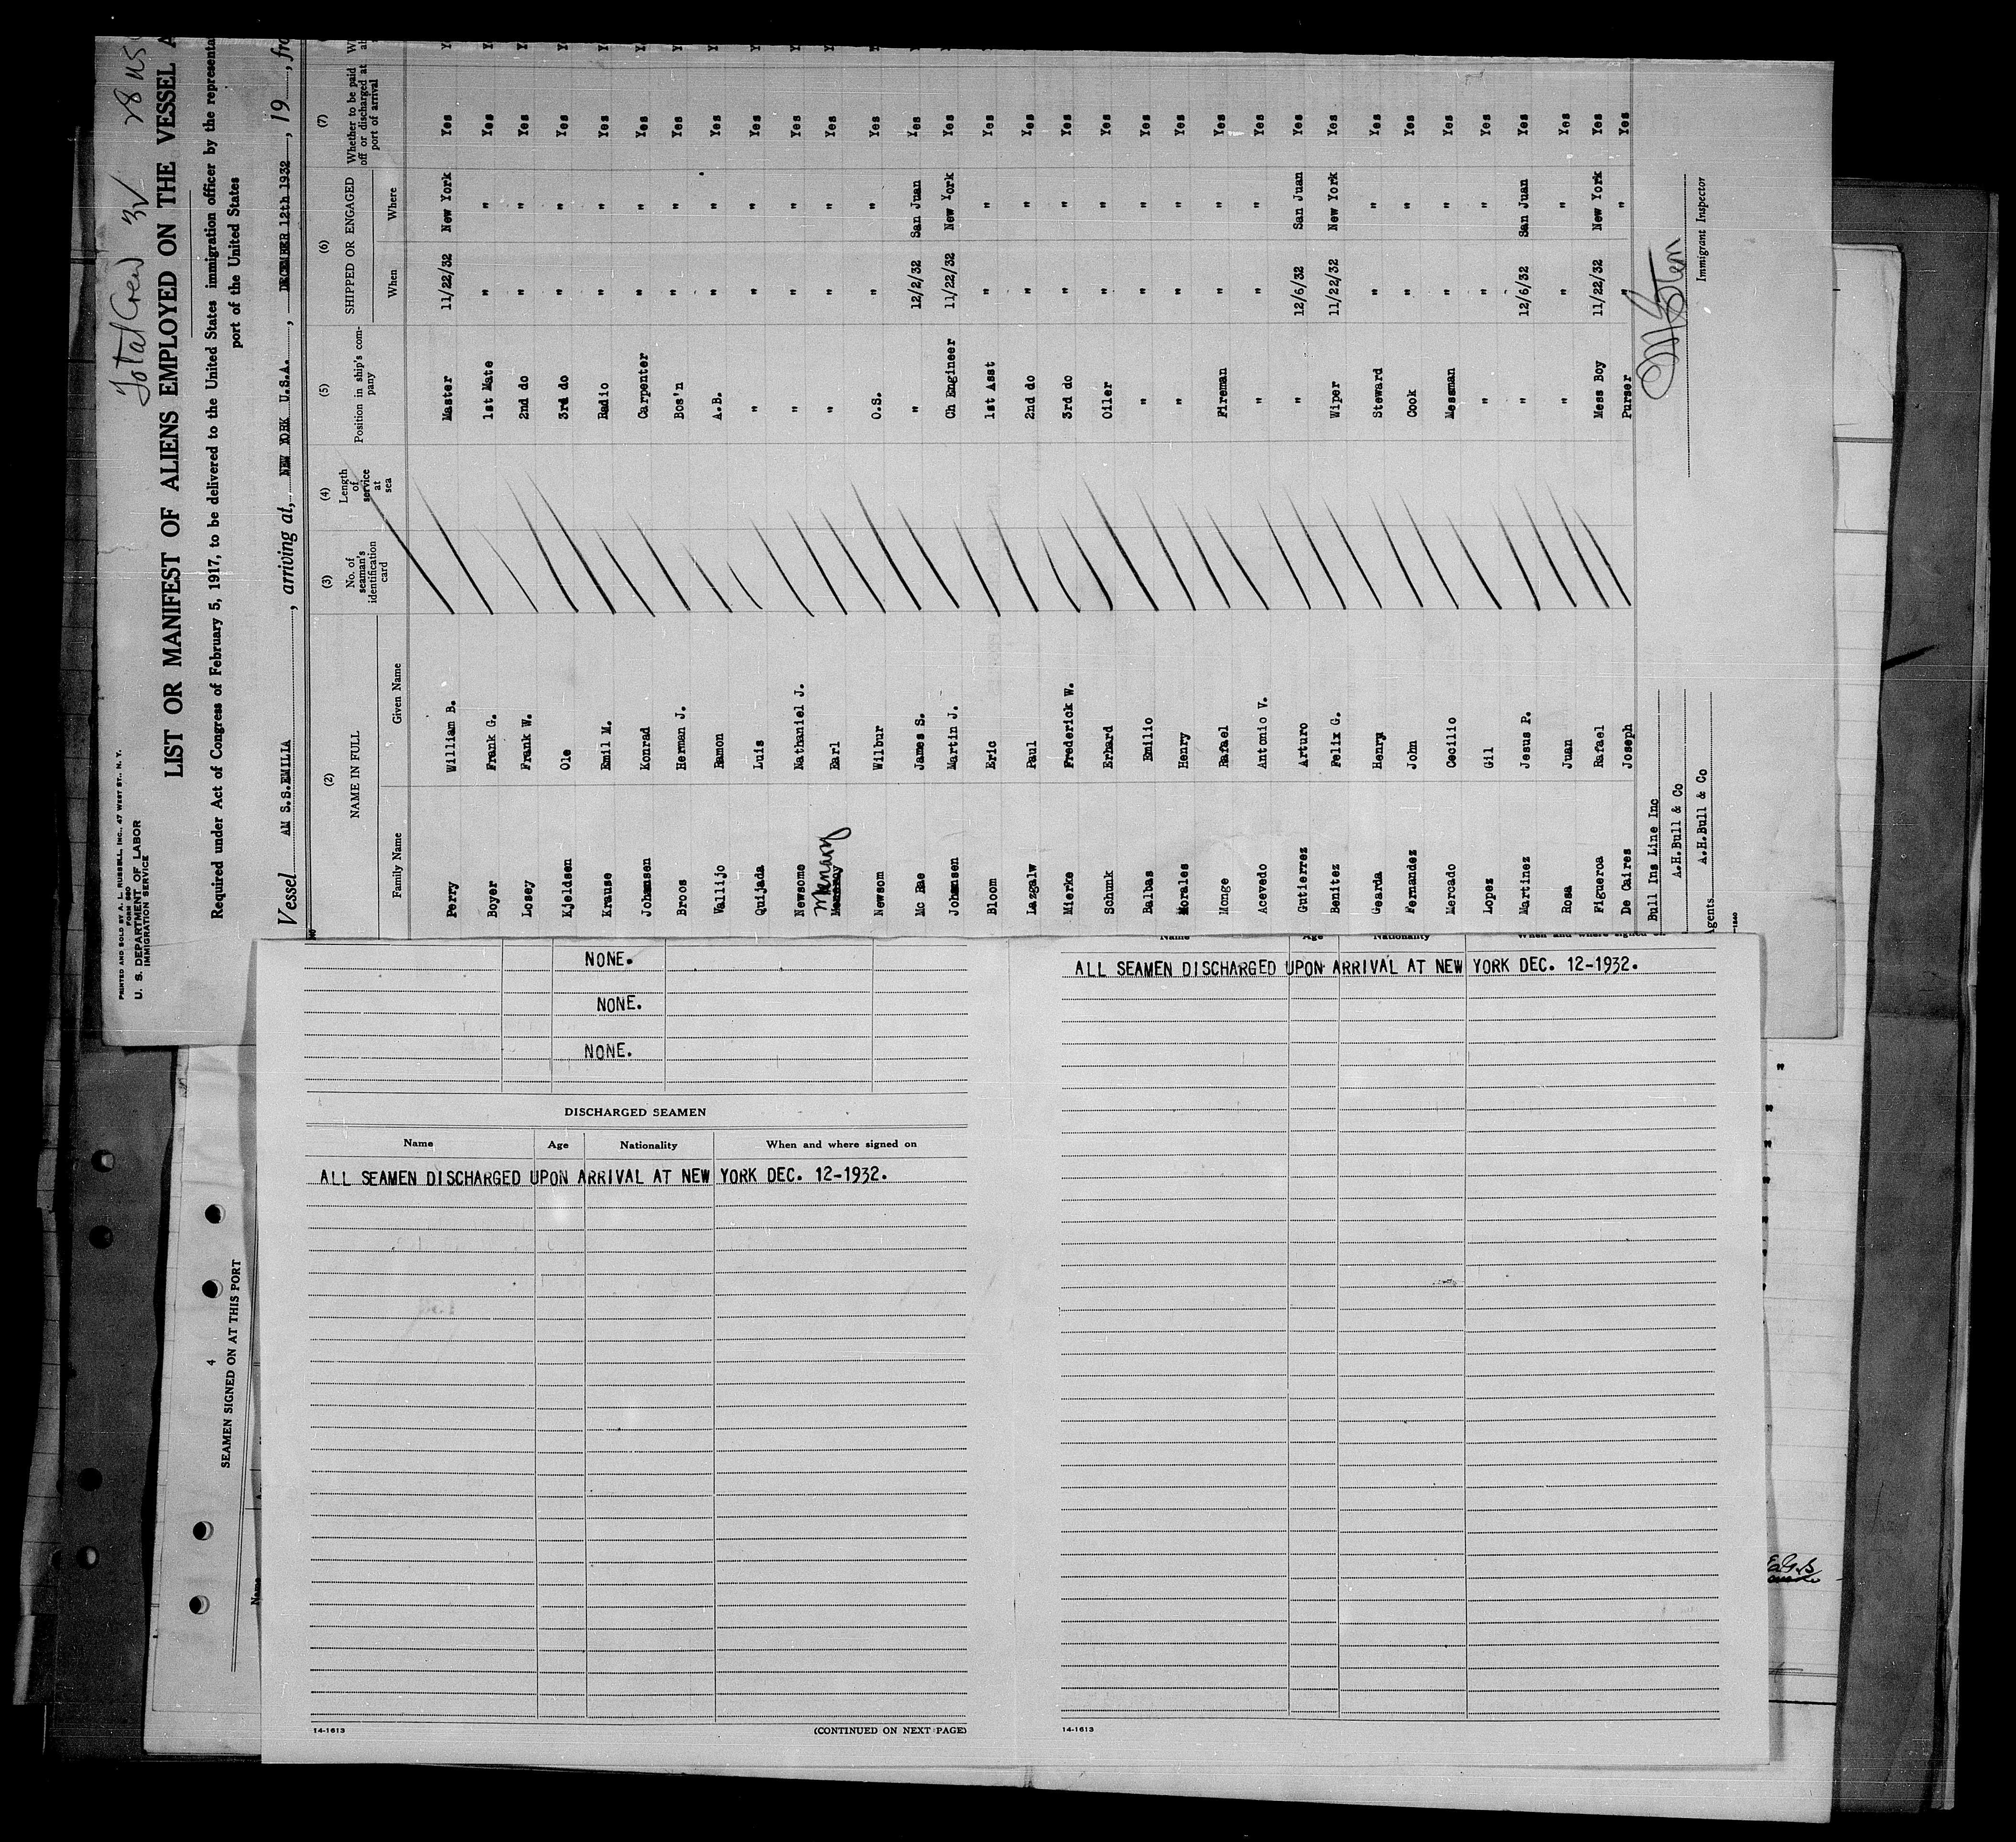 Total Crew 32 28 US
PRINTED AND SOLD BY A. L. RUSSELL, INC., 47 WEST ST., N. Y.
FORM 680
U. S. DEPARTMENT OF LABOR
IMMIGRATION SERVICE
LIST OR MANIFEST OF ALIENS EMPLOYED ON THE VESSEL A
Required under Act of Congress of February 5, 1917, to be delivered to the United States immigration officer by the representa
port of the United States
Vessel AM S.S.EMILIA, arriving at, NEW YORK U.S.A., DECEMBER 12th 1932, 19, fro
(2) (3) (4) (5) (6) (7)
NAME IN FULL No. of seaman's identification card Length of service at sea Position in ship's company SHIPPED OR ENGAGED Whether to be paid off or discharged at port of arrival
Family Name Given Name When Where
Perry William B. Master 11/22/32 New York Yes
Boyer Frank G. 1st Mate " " Yes
Losey Frank W. 2nd do " " Yes
Kjeldsen Ole 3rd do " " Yes
Krause Emil M. Radio " " Yes
Johansen Konrad Carpenter " " Yes
Bros Herman J. Bos'n " " Yes
Vallijo Ramon A.B. " " Yes
Quijada Luis " " " Yes
Newsome Nathaniel J. " " " Yes
Earl " " " Yes
Newsom Wilbur O.S. " " Yes
Mc Rae James S. " 12/2/32 San Juan Yes
Johansen Martin J. Ch Engineer 11/22/32 New York Yes
Bloom Eric 1st Asst " " Yes
Lazgalw Paul 2nd do " " Yes
Mierke Frederick W. 3rd do " " Yes
Schunk Erhard Oiler " " Yes
Balbas Emilio " " " Yes
Morales Henry " " " Yes
Monge Rafael Fireman " " Yes
Acevedo Antonio V. " " " Yes
Gutierrez Arturo " 12/6/32 San Juan Yes
Benitez Felix G. Wiper 11/22/32 New York Yes
Gearda Henry Steward " " Yes
Fernandez John Cook " " Yes
Mercado Cecilio Messman " " Yes
Lopez Gil " " " Yes
Martinez Jesus P. " 12/6/32 San Juan Yes
Rosa Juan " " " Yes
Figueroa Rafael Mess Boy 11/22/32 New York Yes
De Caires Joseph Purser " " Yes
Bull Ins Line Inc
A.H.Bull & Co
Agents A.H.Bull & Co
Immigrant Inspector
NONE.
NONE.
NONE.
DISCHARGED SEAMEN
Name Age Nationality When and where signed on
ALL SEAMEN DISCHARGED UPON ARRIVAL AT NEW YORK DEC. 12-1932.
14-1613 (CONTINUED ON NEXT PAGE)
Name Age Nationality When and where signed on
ALL SEAMEN DISCHARGED UPON ARRIVAL AT NEW YORK DEC. 12-1932.
14-1613
4
SEAMEN SIGNED ON AT THIS PORT
Name